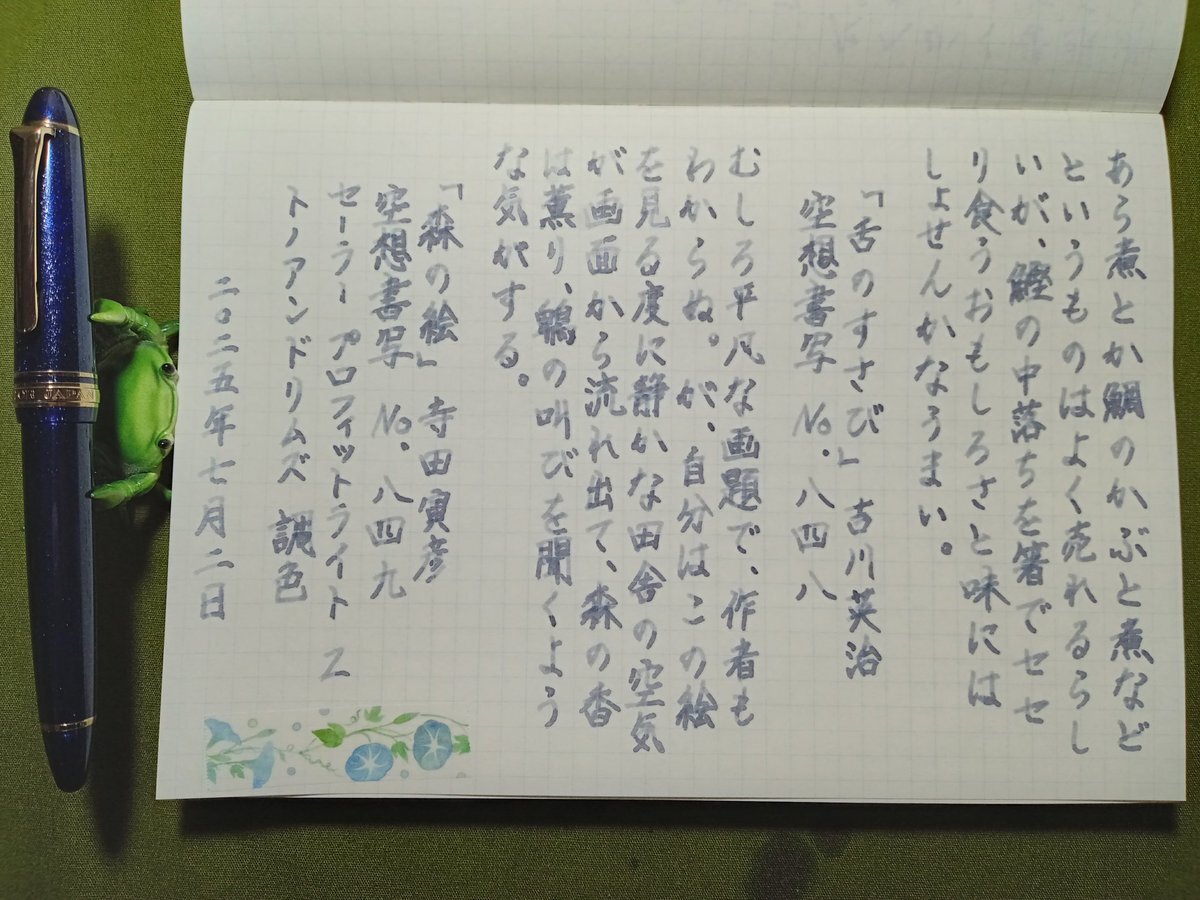 あら煮とか鯛のかぶと煮など
というものはよく売れるらし
いが、鰹の中落ちを箸でセセ
り食うおもしろさと味には
しょせんかなうまい。
「舌のすさび」 吉川英治
空想書写 No.八四八
むしろ平凡な画題で、作者も
わからぬ。が、自分はこの絵
を見る度に静かな田舎の空気
が画面から流れ出て、森の香
は薫り、鵯の叫びを聞くよう
な気がする。
「森の絵」 寺田寅彦
空想書写 No.八四九
セーラー プロフィットライト Z
トノアンドリムズ 調色
二〇二五年七月二日
JAPAN